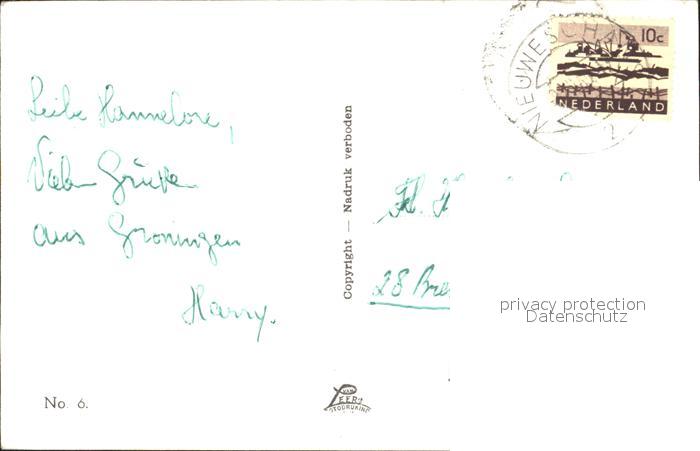 Liebe Hannelore,
Viele Grüße
aus Groningen
Harry.
No. 6.
Copyright — Nadruk verboden
VAN LEER'S
FOTODRUKINR
10c
NEDERLAND
NIEUWESCHA
2
Frl. H
28 Bre
privacy protection
Datenschutz